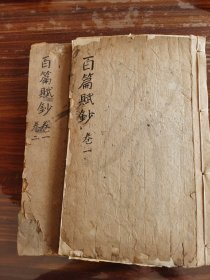 百篇賦鈔 卷一
百篇賦鈔 卷一
卷二